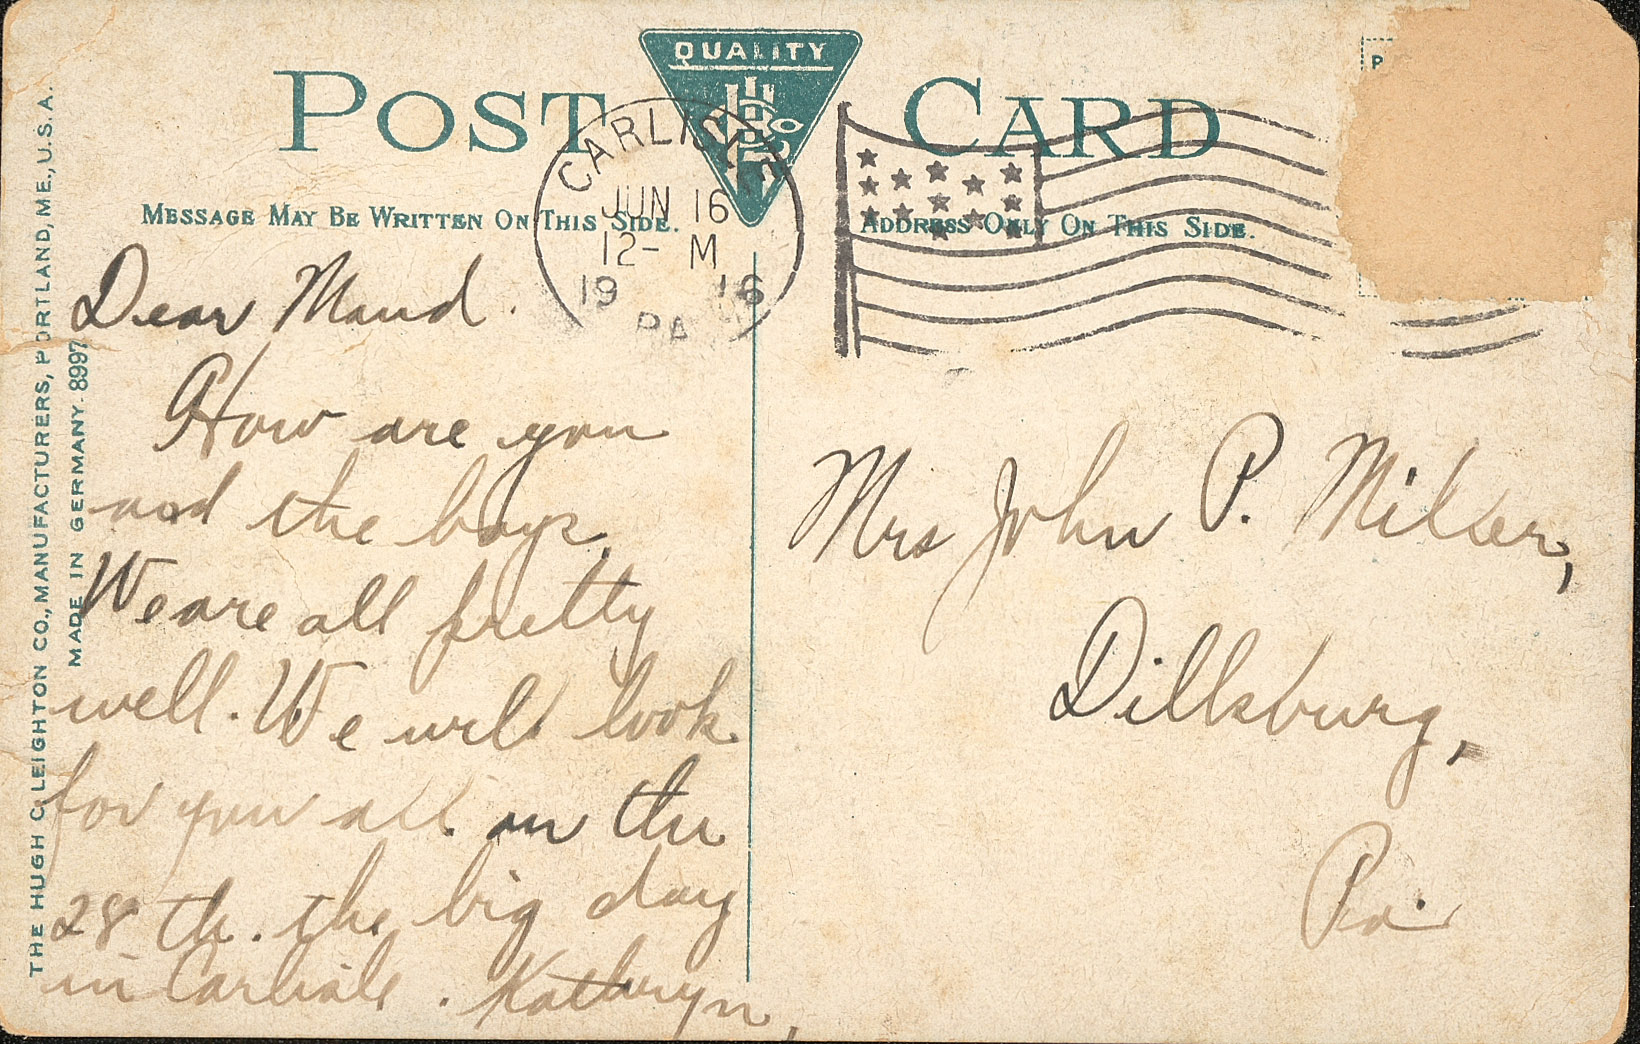 THE HUGH C. LEIGHTON CO., MANUFACTURERS, PORTLAND, ME., U.S.A.
MADE IN GERMANY. 8997
POST CARD
QUALITY
MESSAGE MAY BE WRITTEN ON THIS SIDE.
ADDRESS ONLY ON THIS SIDE.
CARLISLE
JUN 16
12- M
1916
PA
Dear Maud.
How are you
and the boys.
We are all pretty
well. We will look
for you all on the
28 th. the big day
in Carlisle. Kathryn,
Mrs John P. Miller,
Dillsburg,
Pa.